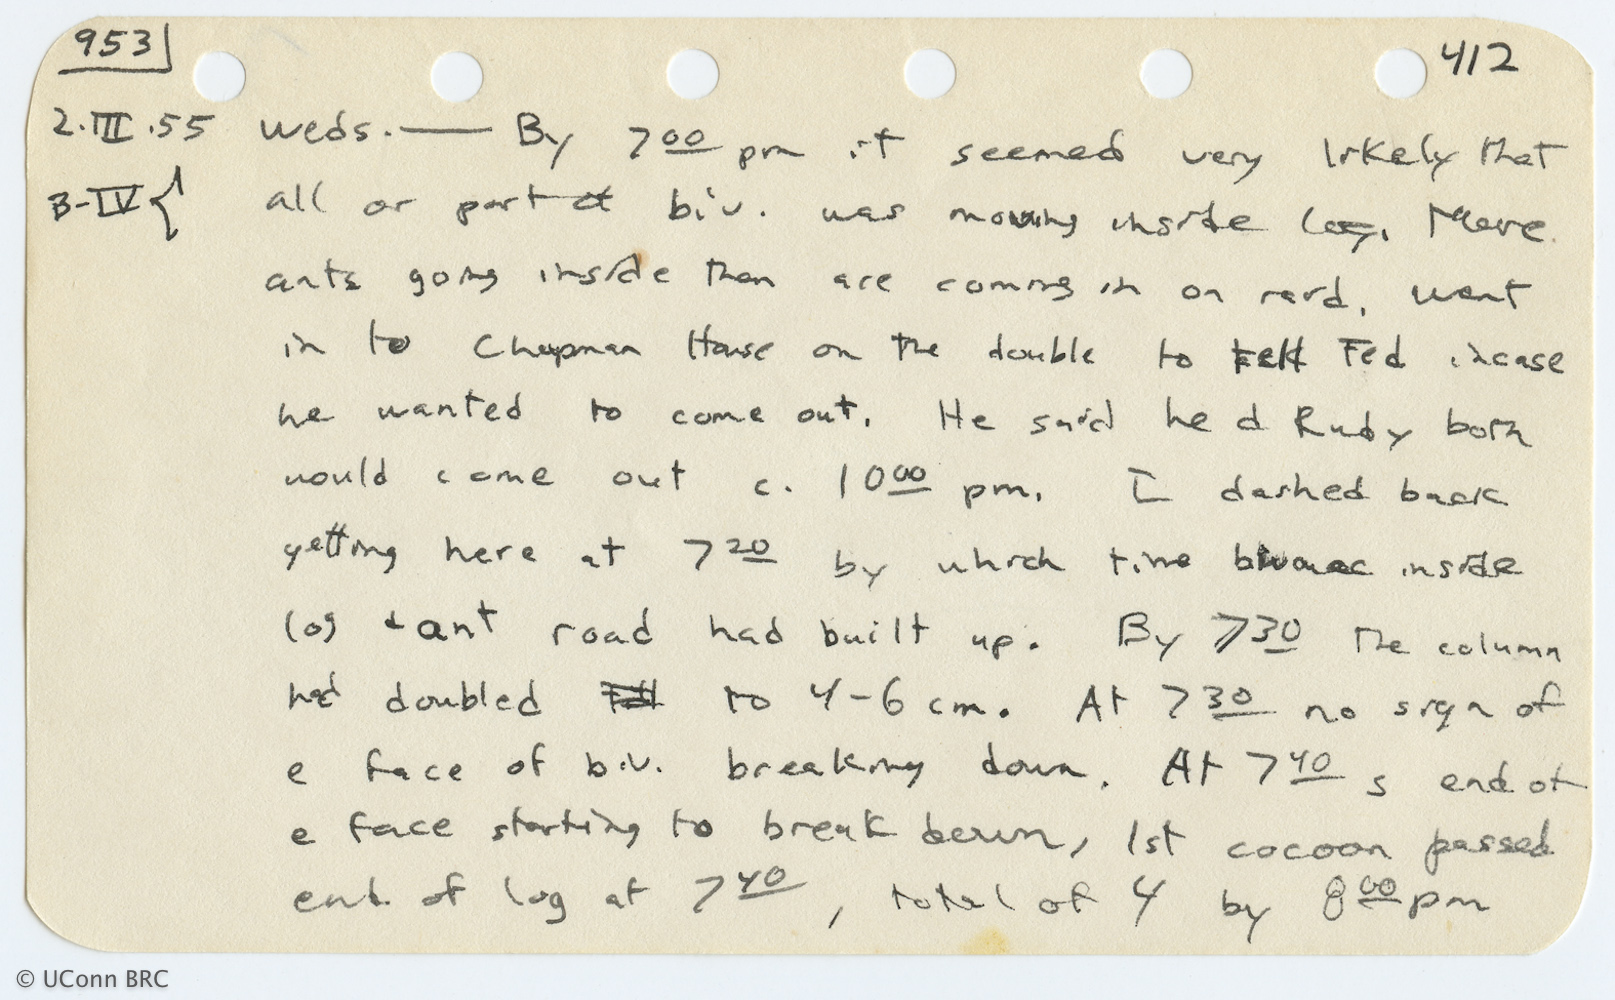 953 412
2.III.55 Weds. — By 7 00 pm it seemed very likely that
B-IV { all or part of biv. was moving inside log. More
ants going inside then are coming in on raid. Went
in to Chapman House on the double to tell Fed incase
he wanted to come out. He said he & Rudy both
would come out c. 10 00 pm. I dashed back
getting here at 7 20 by which time bivouac inside
log & ant road had built up. By 7 30 the column
had doubled to 4-6 cm. At 7 30 no sign of
e face of biv. breaking down. At 7 40 s end of
e face starting to break down, 1st cocoon passed
end of log at 7 40, total of 4 by 8 00 pm
© UConn BRC